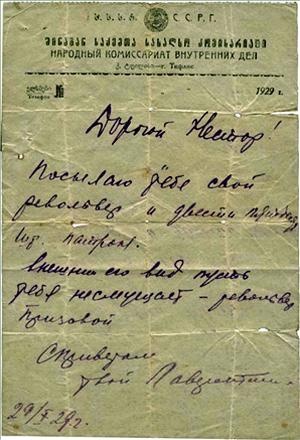 ს. ს. ს. რ. С. С. Р. Г.
შინაგან საქმეთა სახალხო კომისარიატი
НАРОДНЫЙ КОМИССАРИАТ ВНУТРЕННИХ ДЕЛ
г. Тифлис
Телефон № 1929 г.
Дорогой Нестор!
Посылаю тебе свой
револьвер и двести
шт. патрон.
Внешний его вид пусть
тебя несмущает – револьвер
призовой
С приветом
твой Лаврентий
29/X 29г.